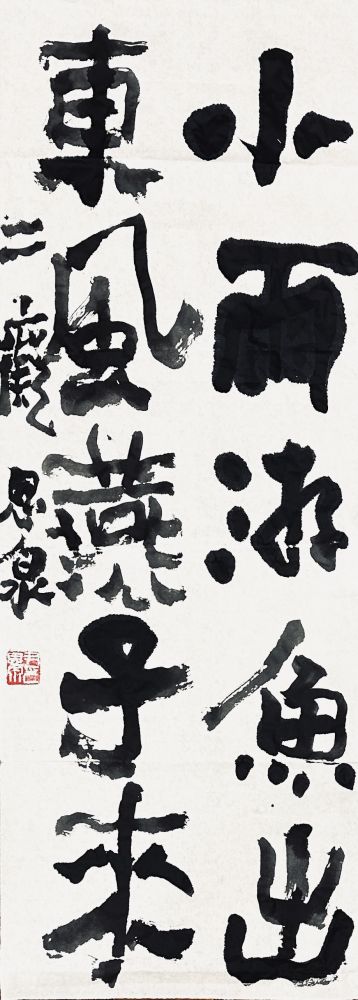 小雨游魚出
東風燕子來
二癡思泉